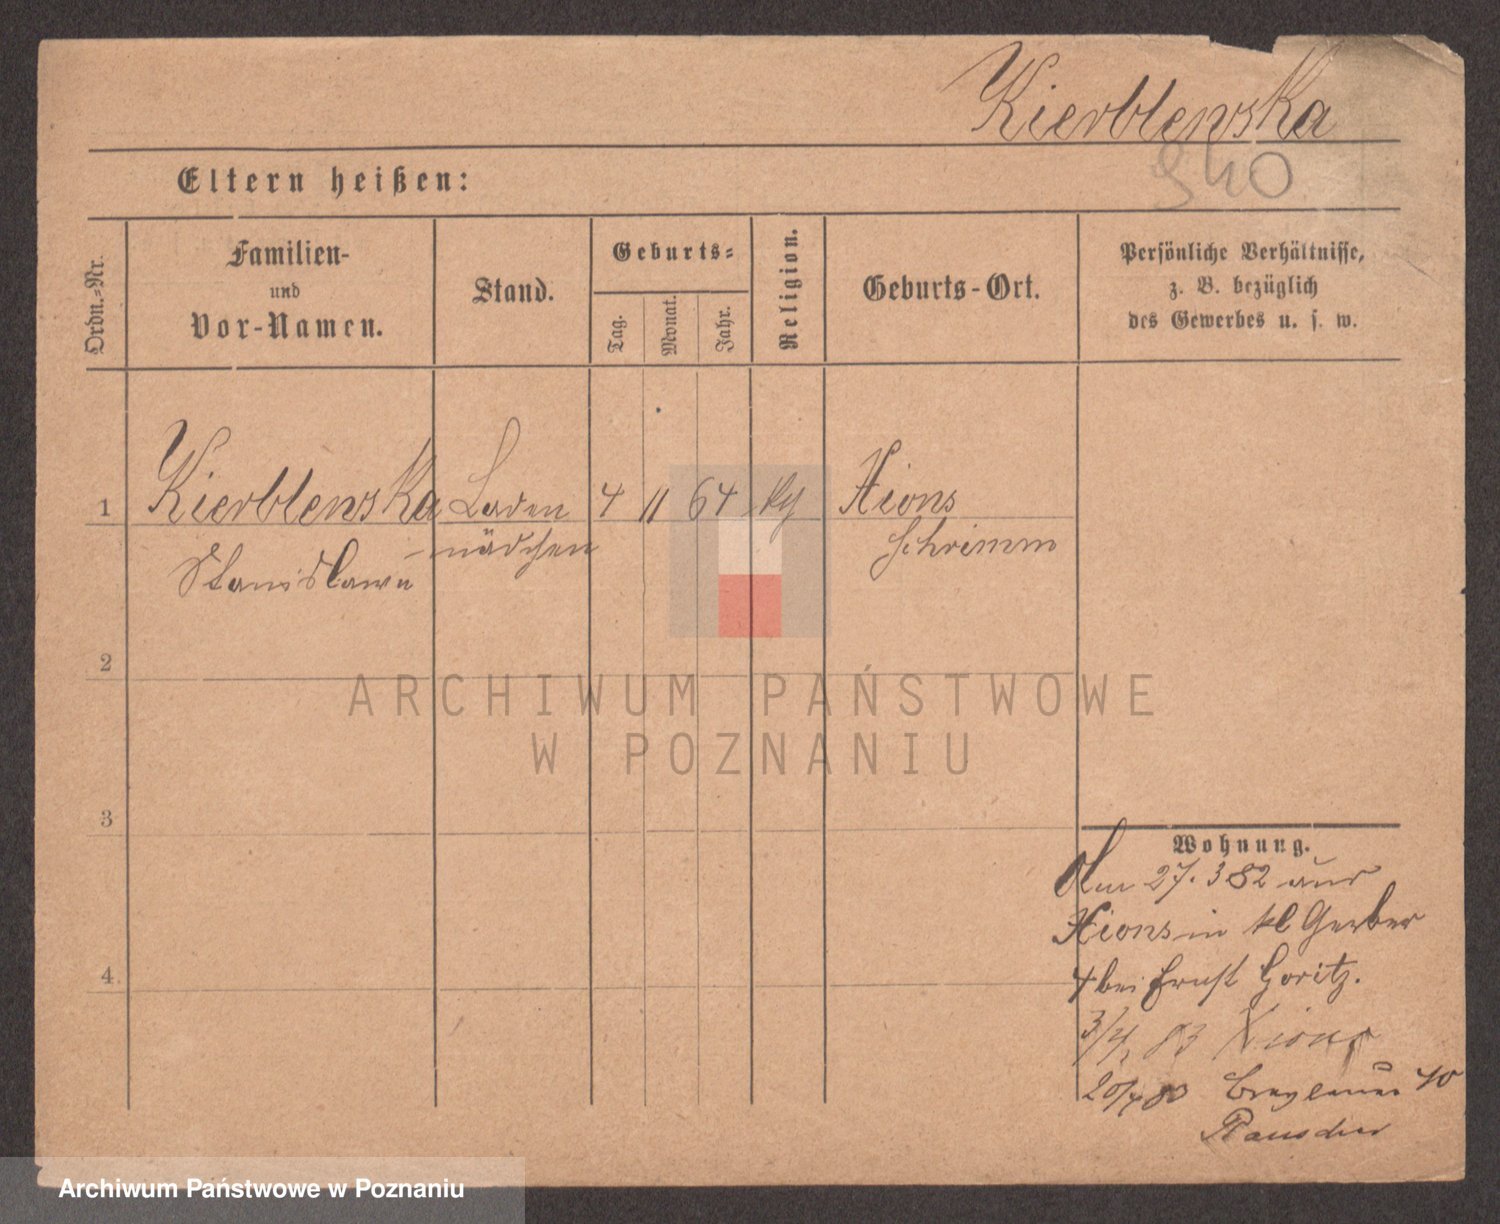 Kierblewska
940
Eltern heißen:
Ordn.-Nr.
Familien-
und
Vor-Namen.
Stand.
Geburts-
Tag.
Monat.
Jahr.
Religion.
Geburts-Ort.
Persönliche Verhältnisse,
z. B. bezüglich
des Gewerbes u. s. w.
1 Kierblewska Laden 4 11 64 Xions
Stanislawa -mädchen Schrimm
2
ARCHIWUM PAŃSTWOWE
W POZNANIU
3
Wohnung.
Am 27.3 82 aus
Xions in kl Gerber
4 bei Ernst Goritz.
4
3/4, 83 Xions
20/4 83 40
Archiwum Państwowe w Poznaniu